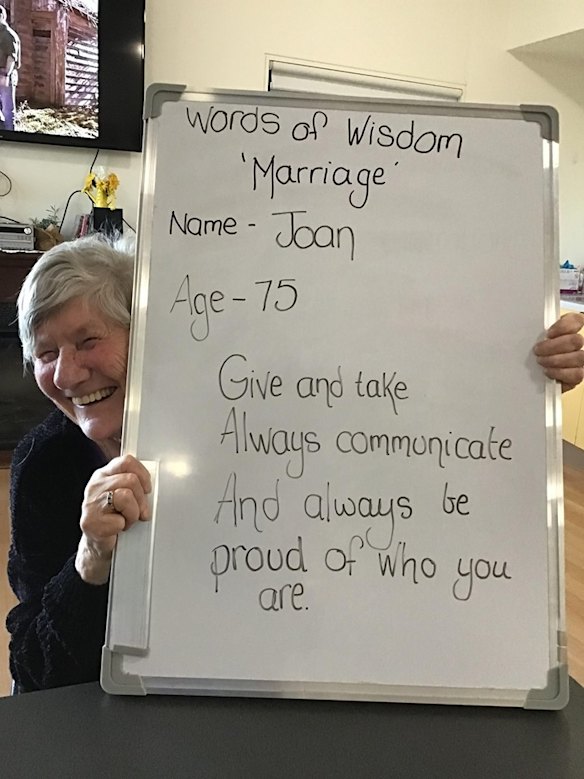 Words of Wisdom
'Marriage'
Name - Joan
Age - 75
Give and take
Always communicate
And always be
proud of who you
are.